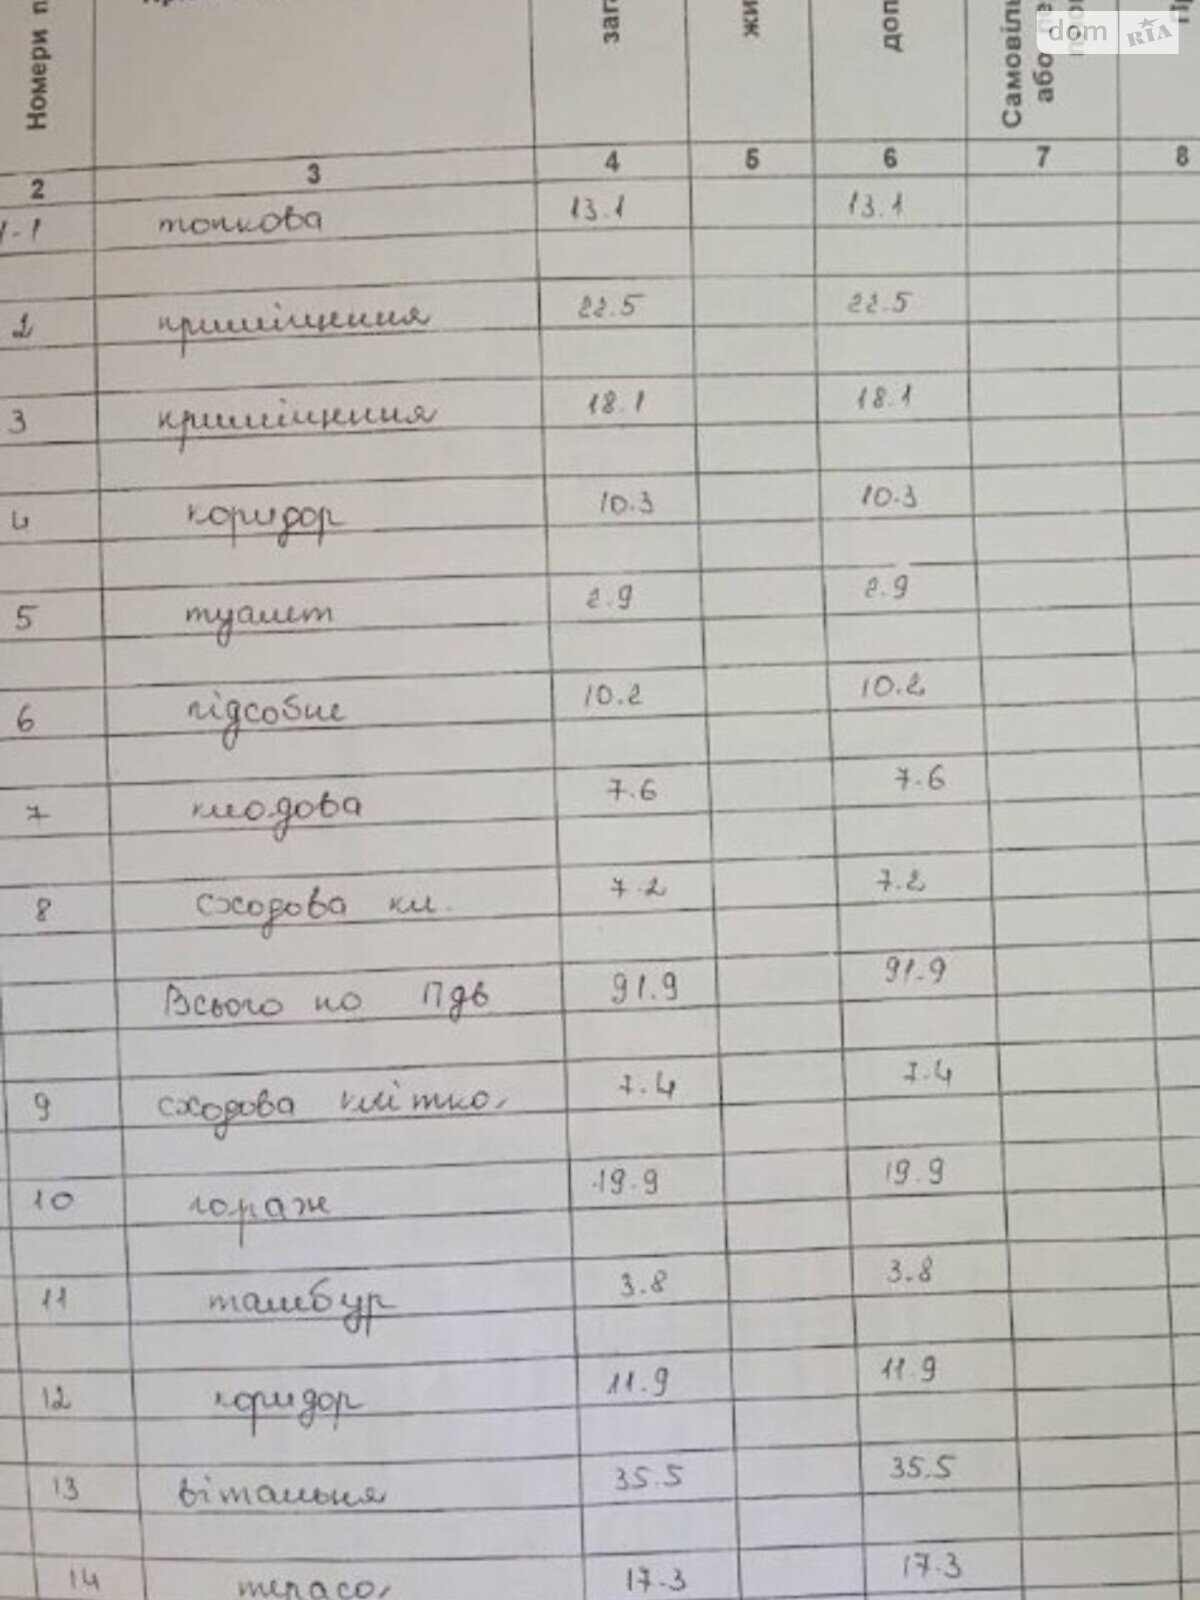 Номери п
заг
жи
доп
Самовіль
або
dom RIA
2 3 4 5 6 7 8
1-1 топкова 13.1 13.1
2 приміщення 22.5 22.5
3 приміщення 18.1 18.1
4 коридор 10.3 10.3
5 туалет 2.9 2.9
6 підсобне 10.2 10.2
7 кладова 7.6 7.6
8 сходова кл. 7.2 7.2
Всього по Пдв 91.9 91.9
9 сходова клітка 7.4 7.4
10 гараж 19.9 19.9
11 тамбур 3.8 3.8
12 коридор 11.9 11.9
13 вітальня 35.5 35.5
14 тераса 17.3 17.3